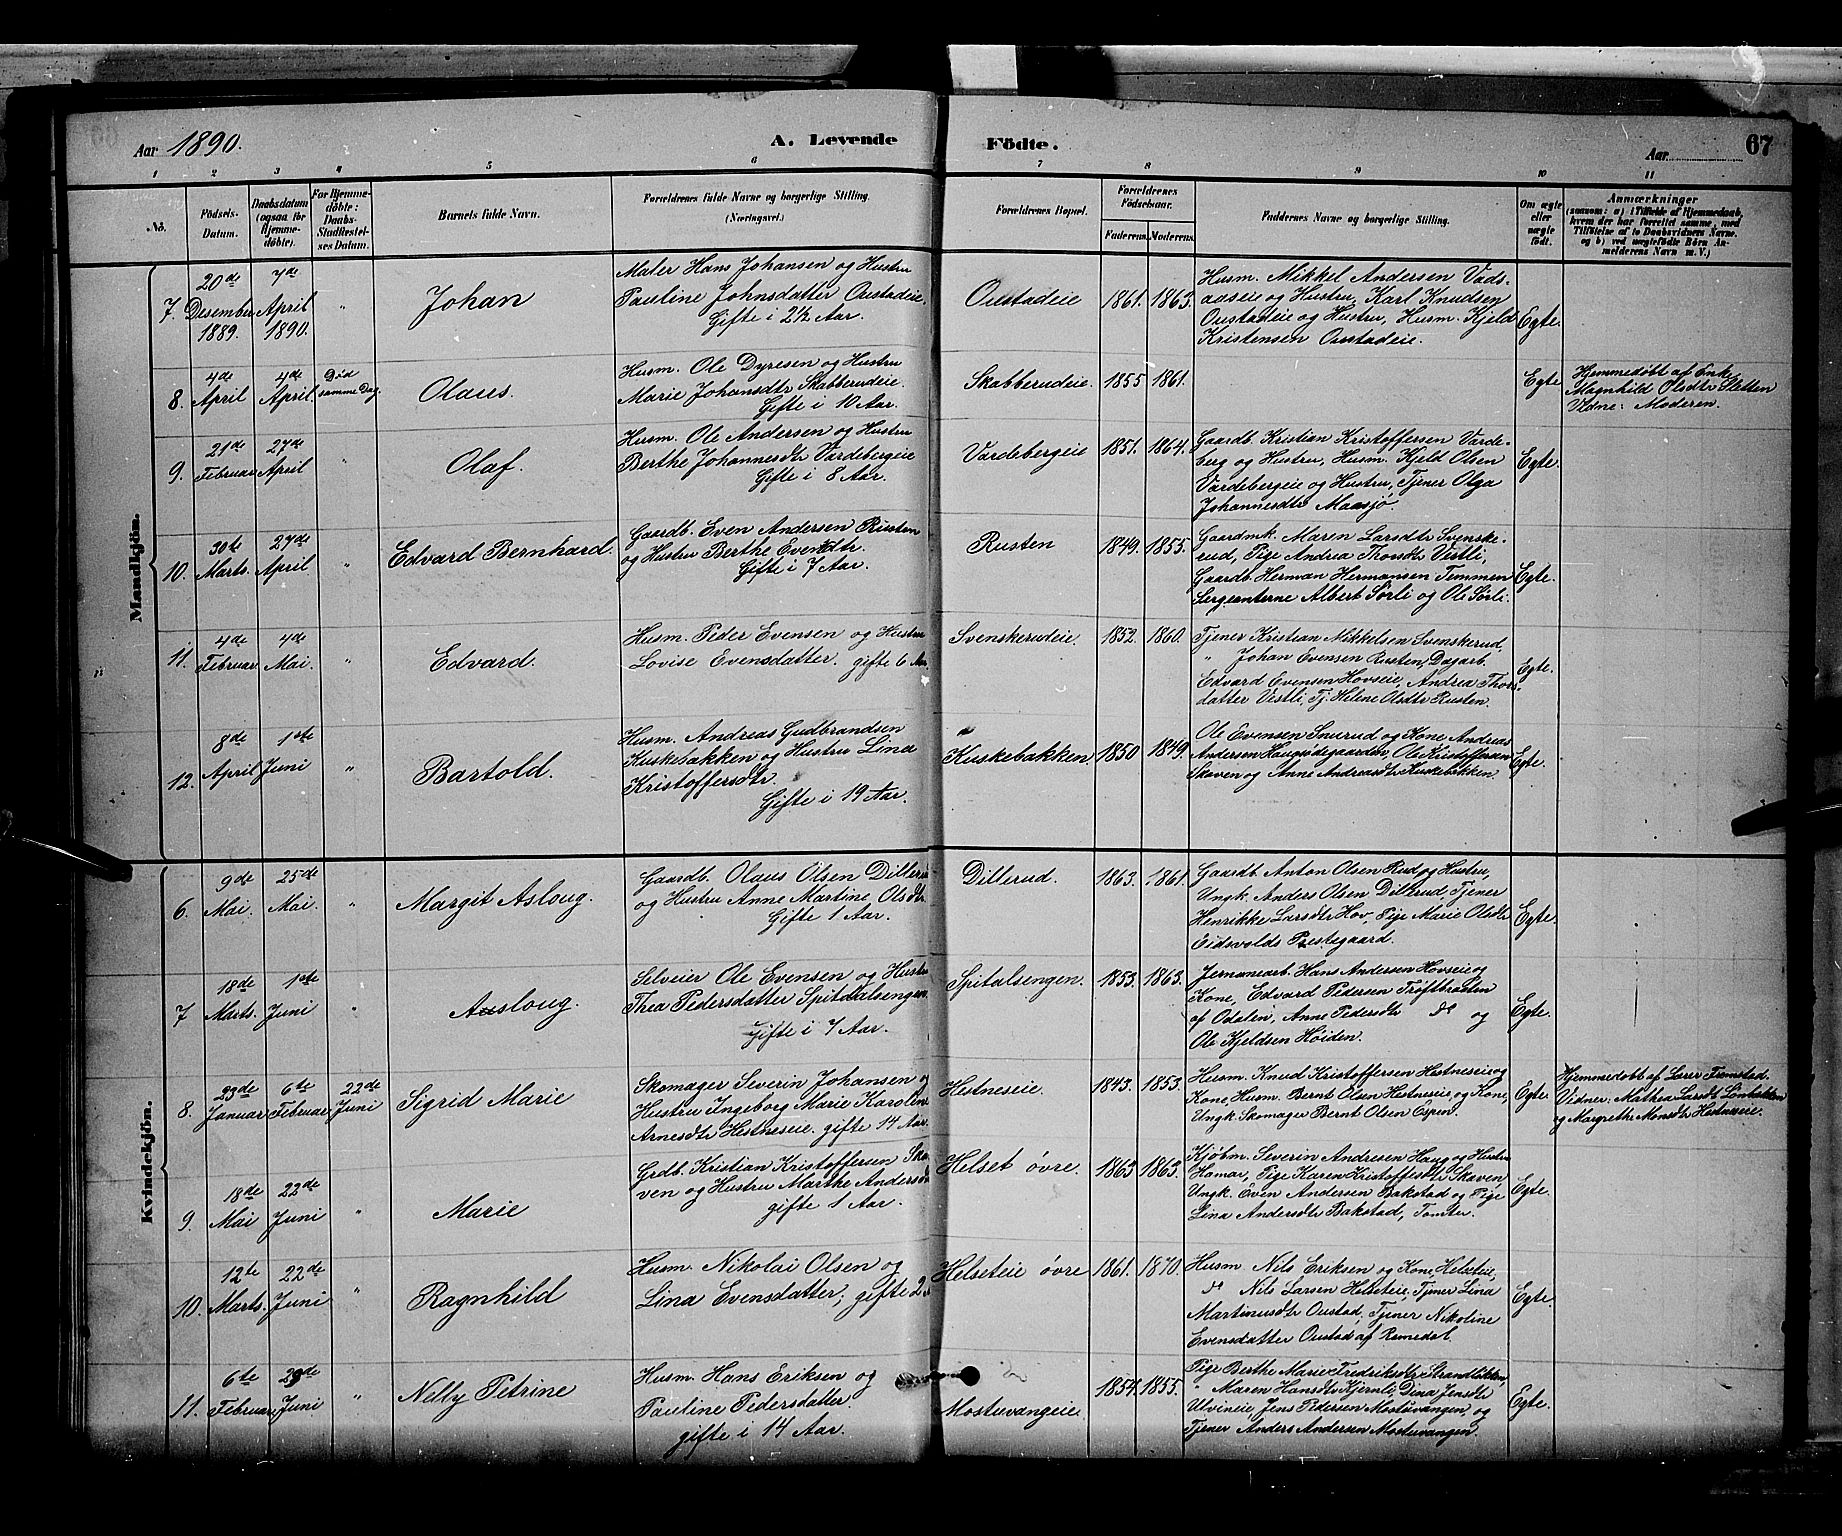 Aar 1890.
A. Levende
Födte.
Aar
67
1 2 3 4 5 6 7 8 9 10 11
No.
Födsels-
Datum.
Daabsdatum
(ogsaa for
Hjemme-
döbte).
For Hjemme-
döbte:
Daabs-
Stadfæstel-
ses Datum.
Barnets fulde Navn.
Forældrenes fulde Navne og borgerlige Stilling.
(Næringsvei.)
Forældrenes Bopæl.
Forældrenes
Födselsaar.
Faderens. Moderens.
Faddernes Navne og borgerlige Stilling.
Om ægte
eller
uægte
födt.
Anmærkninger
(saasom: a) i Tilfælde af Hjemmedaab,
hvem der har forrettet samme, med
Tilföielse af to Daabsvidners Navne,
og b) ved uægtefödte Börn An-
melderens Navn m. V.)
Mandkjön.
7.
20de
Desember
1889.
7de
April
1890.
"
Johan
Maler Hans Johansen og Hustru
Pauline Johnsdatter Oustadeie.
Gifte i 2½ Aar.
Oustadeie
1861. 1863.
Husm. Mikkel Andersen Vads-
aaseie og Hustru, Karl Knudsen
Oustadeie og Hustru, Husm. Kjeld
Kristensen Oustadeie.
Egte.
8.
4de
April
4de
April.
Död
samme Dag.
Olaus.
Husm. Ole Dyresen og Hustru
Marie Johansdtr Skabberudeie.
Gifte i 10 Aar.
Skabberudeie.
1855 1861.
Egte
Hjemmedöbt af Enke
Magnhild Olsdtr Sletten
Vidne: Moderen.
9.
21de
Februar
27de
April
"
Olaf.
Husm. Ole Andersen og Hustru
Berthe Johannesdtr Vardebergeie
Gifte i 8 Aar.
Vardebergeie
1851. 1864.
Gaardb. Kristian Kristoffersen Varde-
berg og Hustru, Husm. Kjeld Olsen
Vardebergeie og Hustru, Tjener Olga
Johannesdtr Maasjø.
Egte.
10.
30te
Marts.
27de
April.
"
Edvard Bernhard.
Gaardb. Even Andersen Rusten
og Hustru Berthe Evendtr.
Gifte i 7 Aar.
Rusten
1849. 1855.
Gaardmk. Maren Larsdtr Svenske-
rud, Pige Andrea Thorsdtr Vestli,
Gaardb. Herman Hermansen Temmen
Sergeanterne Albert Sørli og Ole Sørli.
Egte.
11.
4de
Februar
4de
Mai.
"
Edvard.
Husm. Peder Evensen og Hustru
Lovise Evensdatter. gifte 6 Aar.
Svenskerudeie.
1852. 1860.
Tjener Kristian Mikkelsen Svenskerud,
" Johan Evensen Rusten, Dagarb.
Edvard Evensen Hovseie, Andrea Thors-
datter Vestli, Tj. Helene Olsdtr Rusten.
Egte.
12.
8de
April
1ste
Juni
"
Bartold.
Husm. Andreas Gudbrandsen
Kuskebakken og Hustru Lina
Kristoffersdtr.
Gifte i 19 Aar.
Kuskebakken.
1850 1849.
Ole Evensen Snurud og Kone Andreas
Andersen Haugsødegaarden, Ole Kristoffersen
Skaven og Anne Andreasdtr Kuskebakken
Egte.
Kvindekjön.
6.
9de
Mai.
25de
Mai.
"
Margit Asloug.
Gaardb. Olaus Olsen Dillerud
og Hustru Anne Martine Olsdtr
Gifte 1 Aar.
Dillerud.
1863. 1861.
Gaardb. Anton Olsen Rud og Hustru,
Ungk. Anders Olsen Dillerud, Tjener
Henrikke Larsdtr Hov, Pige Marie Olsdtr
Eidsvolds Prestegaard.
Egte.
7
18de
Marts.
1ste
Juni.
"
Ausloug.
Selveier Ole Evensen og Hustru
Thea Pedersdatter Spitdalsengen
Gifte i 7 Aar.
Spitalsengen.
1853. 1863.
Jernbanearb. Hans Andersen Hovseie og
Kone, Edvard Pedersen Tröftbraaten
af Odalen, Anne Pedersdtr do og
Ole Kjeldsen Høiden.
Egte.
8.
23de
Januar
6te
Februar
22de
Juni
Sigrid Marie
Skomager Severin Johansen og
Hustru Ingeborg Marie Karoline
Arnesdtr Hestneseie. gifte 14 Aar.
Hestneseie.
1843. 1853.
Husm. Knud Kristoffersen Hestneseie og
Kone, Husm. Bernt Olsen Hestneseie, og Kone,
Ungk. Skomager Bernt Olsen Espen.
Egte.
Hjemmedöbt af Lærer Tremstad.
Vidner: Mathea Larsdtr Lönbakken
og Margrethe Monsdtr Hestneseie.
9.
18de
Mai
22de
Juni
"
Marie
Grdb. Kristian Kristoffersen Ska-
ven og Hustru Marthe Andersdtr
gifte 1 Aar.
Helset övre.
1863 1863.
Kjøbm. Severin Andresen Haug og Hustru
Hamar, Pige Karen Kristoffersdtr Skaven
Ungk. Even Andersen Bakstad og Pige
Lina Andersdtr Bakstad, Tomter.
Egte.
10.
12te
Marts.
22de
Juni
"
Ragnhild
Husm. Nikolai Olsen og
Lina Evensdatter, gifte 2
Helseteie övre
1861. 1870.
Husm. Nils Eriksen og Kone Helseteie,
do Nils Larsen Helseteie, Tjener Lina
Martinusdtr Oustad, Tjener Nikoline
Evensdatter Oustad af Romedal.
Egte.
11.
6te
Februar
29de
Juni
"
Nelly Petrine
Husm. Hans Eriksen og
Pauline Pedersdatter.
gifte i 14 Aar.
Mostuvangeie.
1854. 1855.
Pige Berthe Marie Fredriksdtr Strandløkken,
" Maren Hansdtr Kjernli, Dina Jensdtr
Ulvineie, Jens Pedersen Mostuvangen, og
Tjener Anders Andersen Mostuvangen.
Egte.